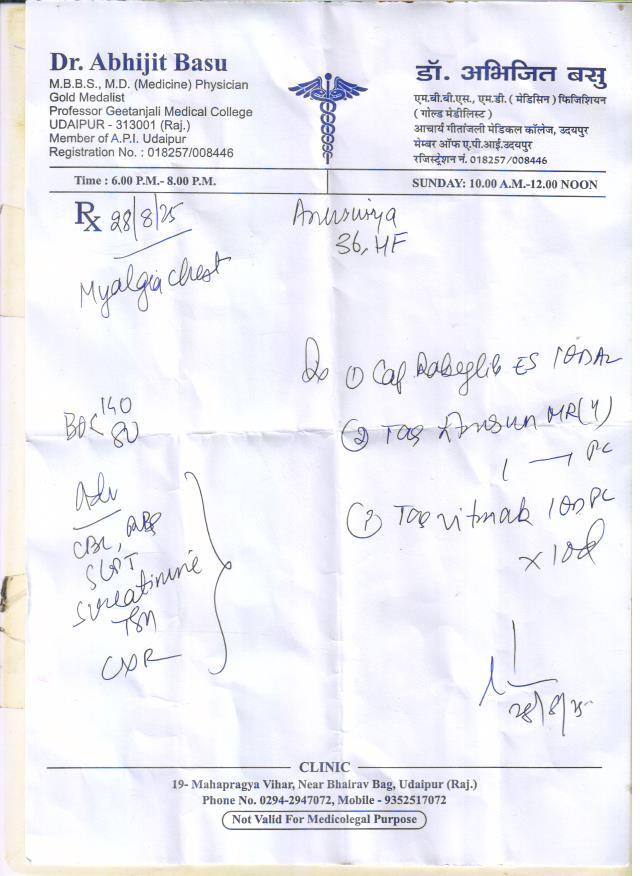 Dr. Abhijit Basu
M.B.B.S., M.D. (Medicine) Physician
Gold Medalist
Professor Geetanjali Medical College
UDAIPUR - 313001 (Raj.)
Member of A.P.I. Udaipur
Registration No. : 018257/008446
डॉ. अभिजित बसु
एम.बी.बी.एस., एम.डी. ( मेडिसिन ) फिजिशियन
( गोल्ड मेडीलिस्ट )
आचार्य गीतांजली मेडिकल कॉलेज, उदयपुर
मेम्बर ऑफ ए.पी.आई.उदयपुर
रजिस्ट्रेशन नं. 018257/008446
Time : 6.00 P.M.- 8.00 P.M.
SUNDAY: 10.00 A.M.-12.00 NOON
Rx 28/8/25
Anusuiya
36,
Myalgia chest
Rx ① Cap ES 1OD AC
140
80
② Tab MR(4)
1 → PC
③ Tab 1OD PC
x 10d
Adv
CBC, RBS
SGPT
S creatinine
TSH
CXR
28/8/25
CLINIC
19- Mahapragya Vihar, Near Bhairav Bag, Udaipur (Raj.)
Phone No. 0294-2947072, Mobile - 9352517072
Not Valid For Medicolegal Purpose